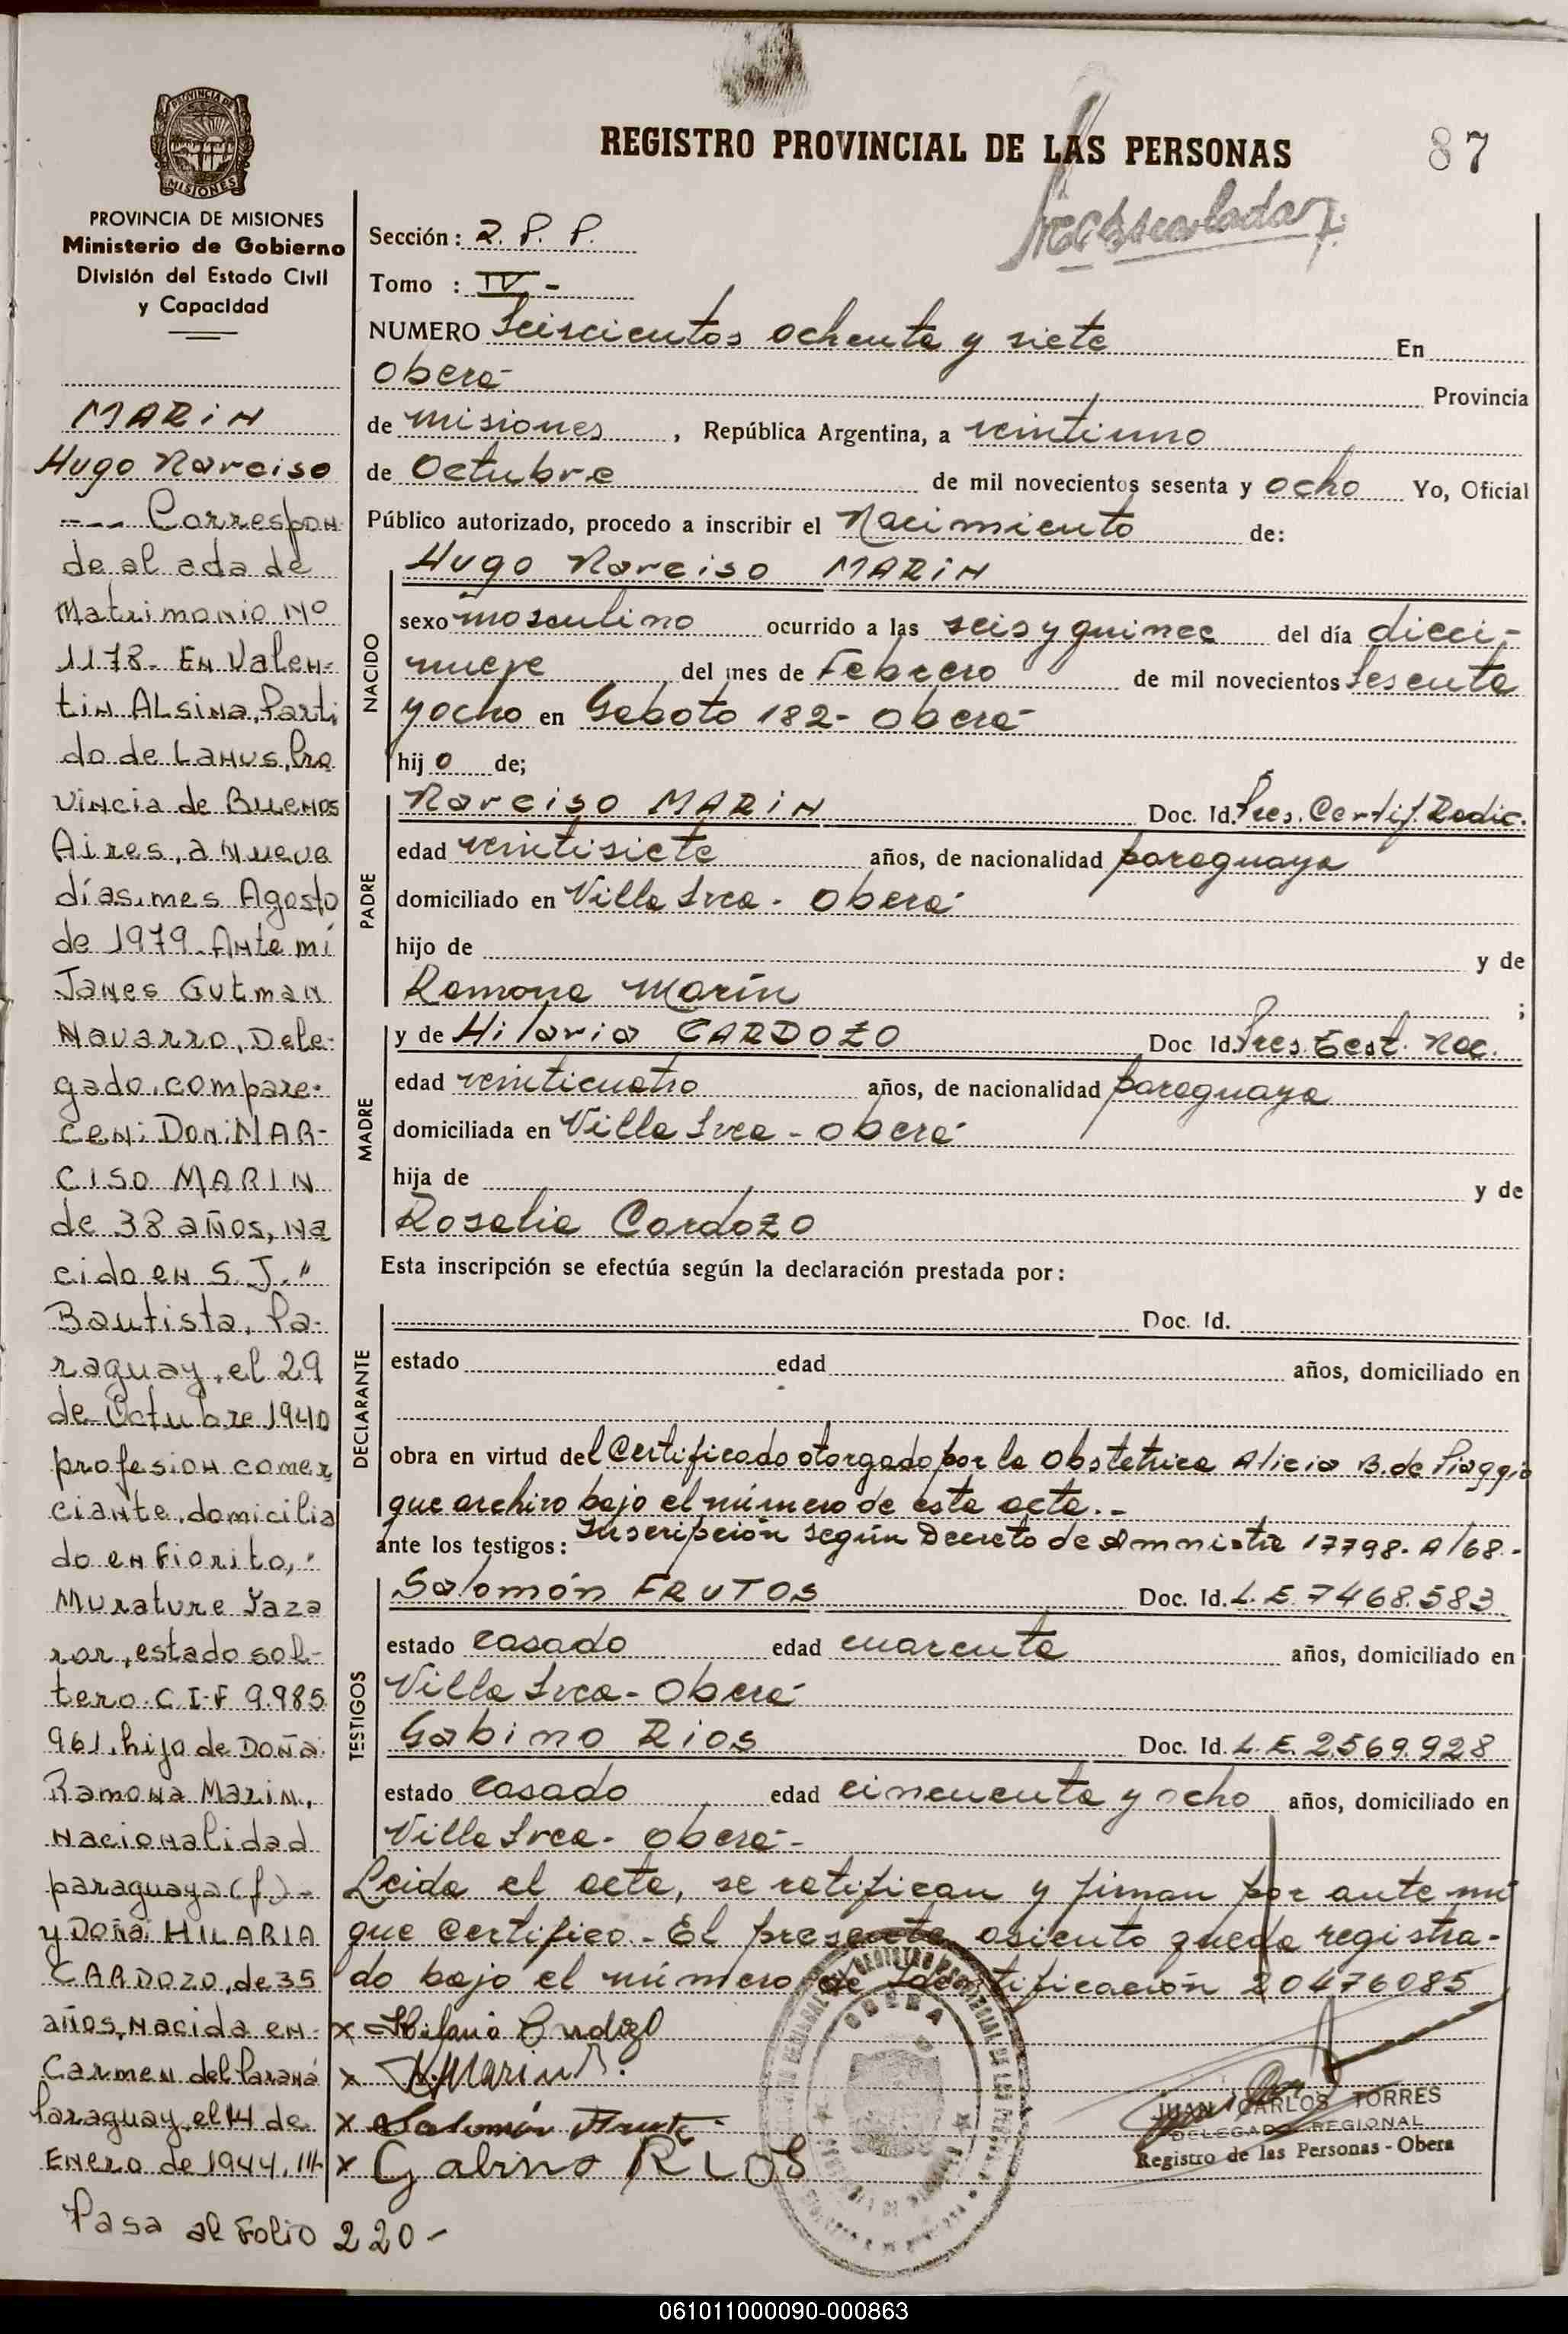 REGISTRO PROVINCIAL DE LAS PERSONAS
87
PROVINCIA DE MISIONES
Ministerio de Gobierno
División del Estado Civil
y Capacidad
MARIN
Hugo Narciso
---- Correspon
de al acta de
Matrimonio Nº
1178- En Valen-
tin Alsina, Parti
do de Lanus, Pro
vincia de Buenos
Aires, a Nueve
días, mes Agosto
de 1979. Ante mí
James Gutman
Navarro, Dele-
gado, compare-
cen: Don: NAR-
CISO MARIN
de 38 años, na
cido en S. J."
Bautista, Pa-
raguay, el 29
de Octubre 1940
profesion comer
ciante, domicilia
do en Fiorito,"
Murature Yaza
ror, estado sol-
tero. C I.F 9.985
961, hijo de Doña
Ramona Marin,
nacionalidad
paraguaya (f.)-
y Doña: HILARIA
CARDOZO, de 35
años, nacida en
Carmen del Paraná
Paraguay, el 14 de
Enero de 1944, ///-
Pasa al Folio 220-
Sección: R. P. P.
Tomo : IV -
NUMERO Seiscientos ochenta y siete En
Oberá Provincia
de Misiones, República Argentina, a veintiuno
de Octubre de mil novecientos sesenta y ocho Yo, Oficial
Público autorizado, procedo a inscribir el Nacimiento de:
NACIDO
Hugo Narciso MARIN
sexo masculino ocurrido a las seis y quince del día dieci-
nueve del mes de Febrero de mil novecientos Sesenta
y ocho en Gaboto 182- Oberá
hij o de;
PADRE
Narciso MARIN Doc. Id. Pres. Certif. Radic.
edad veintisiete años, de nacionalidad paraguaya
domiciliado en Villa Svea- Oberá
hijo de y de
Ramona Marín ;
MADRE
y de Hilaria CARDOZO Doc Id. Pres. Test. Nac.
edad veinticuatro años, de nacionalidad paraguaya
domiciliada en Villa Svea - Oberá
hija de y de
Rosalia Cardozo
Esta inscripción se efectúa según la declaración prestada por:
DECLARANTE
Doc. Id.
estado edad años, domiciliado en
obra en virtud del Certificado otorgado por la Obstetrica Alicia B. de Piaggio
que archivo bajo el número de esta acta.-
ante los testigos: Inscripción según Decreto de Amnistia 17798- A/68.-
TESTIGOS
Salomón FRUTOS Doc. Id. L. E. 7468.583
estado casado edad cuarenta años, domiciliado en
Villa Svea- Oberá
Gabino RIOS Doc. Id. L. E. 2.569.928
estado casado edad cincuenta y ocho años, domiciliado en
Villa Svea- Oberá-
Leida el acta, se ratifican y firman por ante mí
que certifico.- El presente asiento queda registra-
do bajo el número de Identificación 20476085
x Hilaria Cardozo
x N Marin
x Salomón Frutos
x Gabino RIOS
JUAN CARLOS TORRES
DELEGADO REGIONAL
Registro de las Personas - Obera
OBERA
061011000090-000863